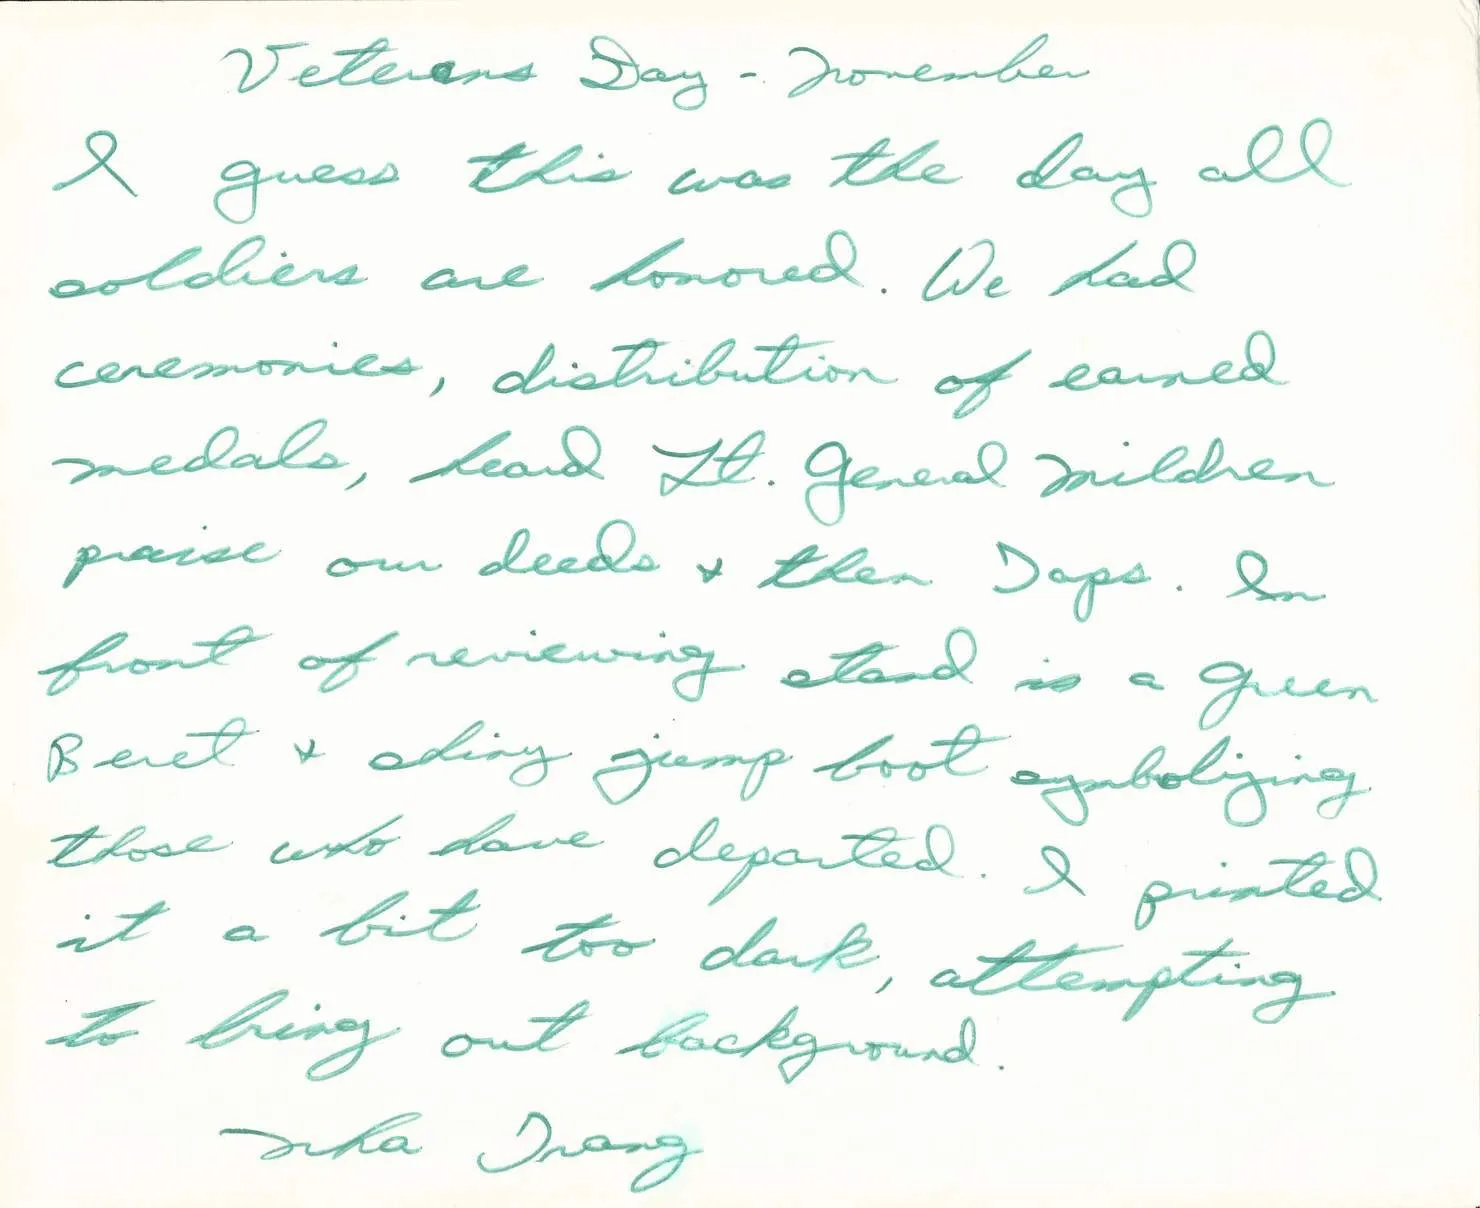 Veterans Day - November
I guess this was the day all
soldiers are honored. We had
ceremonies, distribution of earned
medals, heard Lt. General Mildren
praise our deeds & then Taps. In
front of reviewing stand is a Green
Beret & shiny jump boot symbolizing
those who have departed. I printed
it a bit too dark, attempting
to bring out background.
Nha Trang